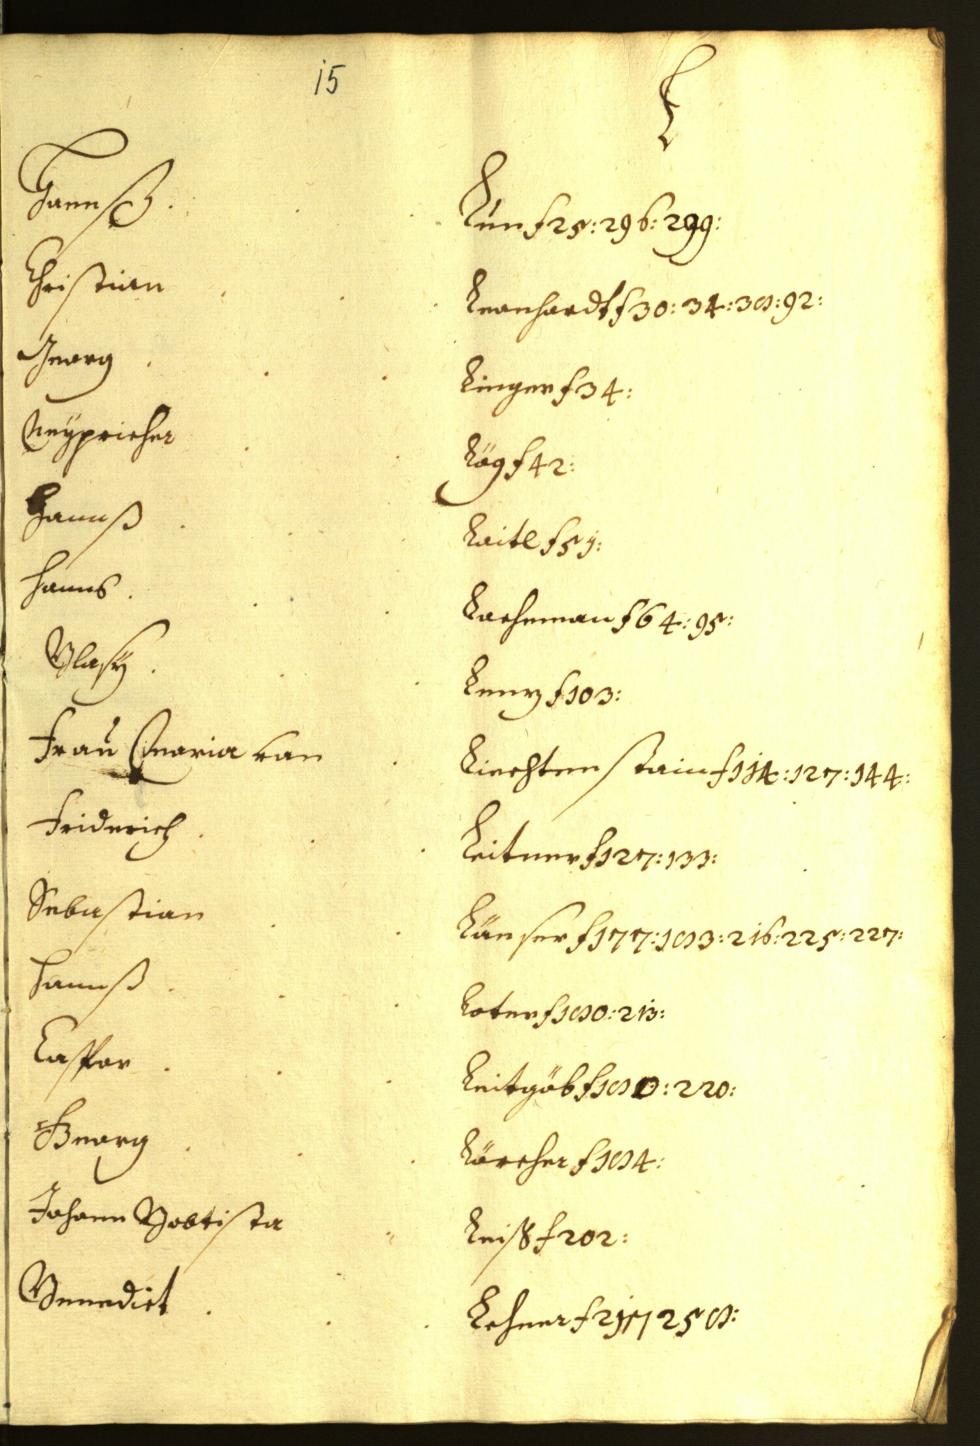 15
L
Hannß. Lün f 25: 296: 299:
Christian Leonhardt f 30: 34: 38: 92:
Georg Linger f 34:
Neypricher Läg f 42:
Hannß Laitl f 51:
Hanns. Lachman f 64: 95:
Blasÿ. Lenz f 103:
Frau Maria von Liechtenstain f 114: 127: 144:
Friderich Leitner f 127: 133:
Sebastian Länser f 177: 183: 216: 225: 227:
Hannß Loter f 180: 213:
Caspar Leitgöb f 180: 220:
Georg Lörcher f 184:
Johann Babtista Leiß f 202:
Benedict Lehner f 217 258: